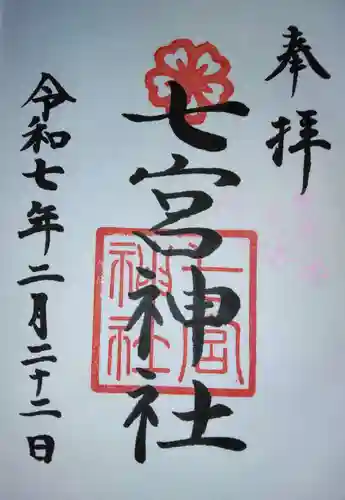 奉拝
七宮神社
七宮神社
令和七年二月二十二日